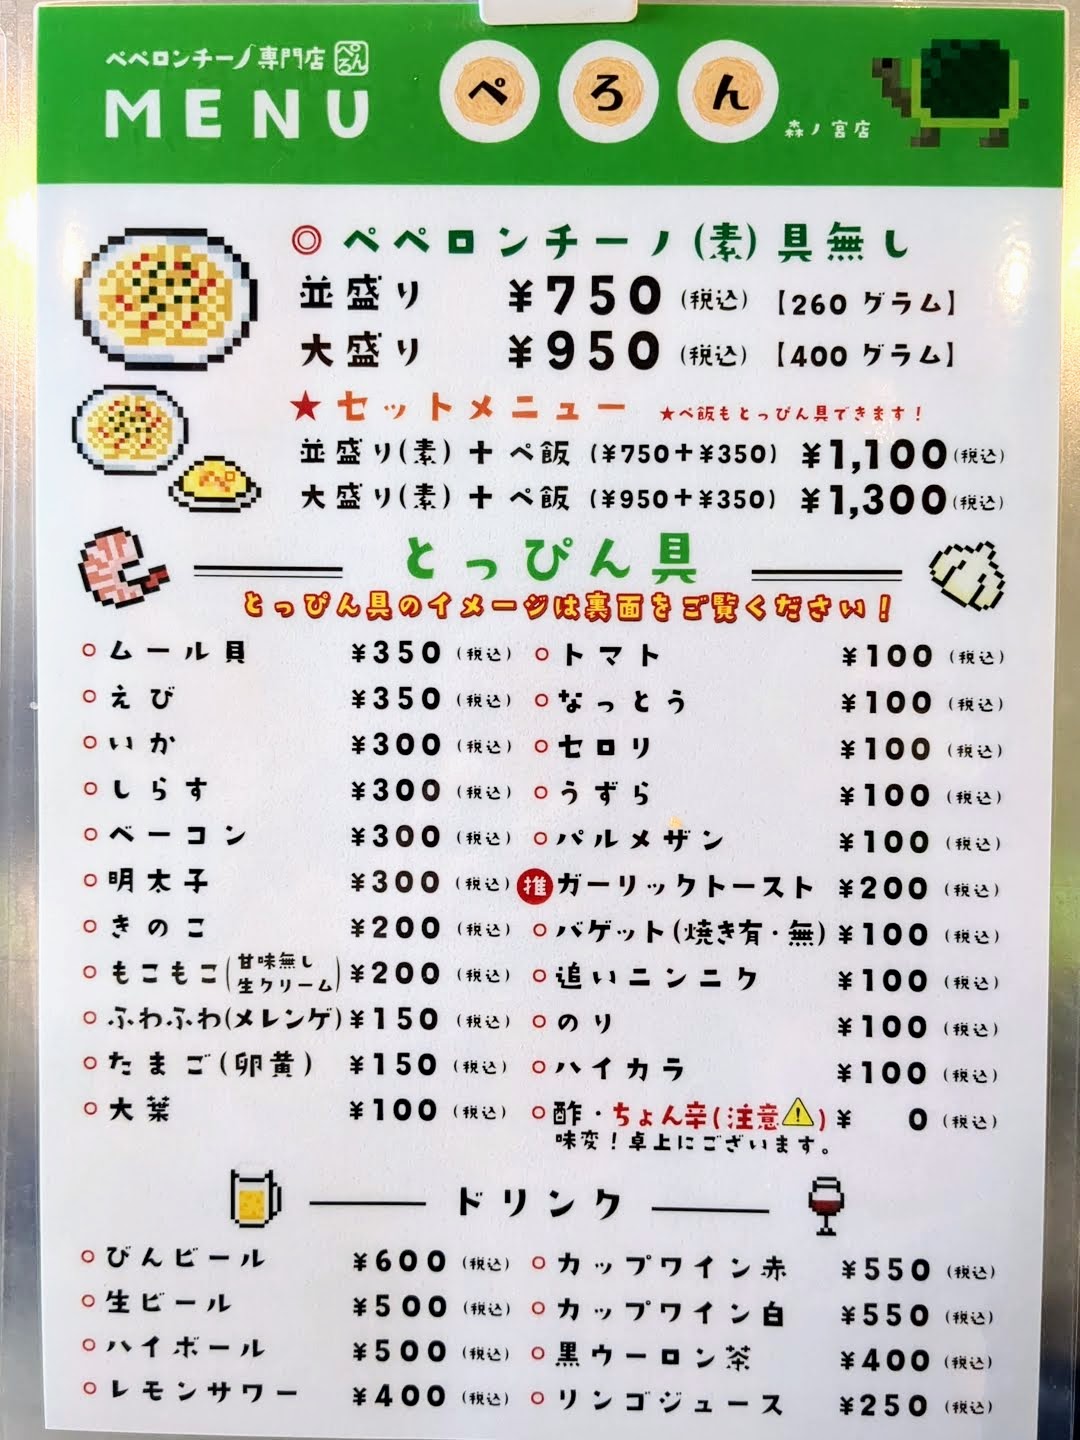 ペペロンチーノ専門店 ぺろん
MENU
ぺ ろ ん
森ノ宮店
◎ ペペロンチーノ(素)具無し
並盛り ¥750 (税込) 【260 グラム】
大盛り ¥950 (税込) 【400 グラム】
★セットメニュー ★ペ飯もとっぴん具できます!
並盛り(素)+ペ飯 (¥750+¥350) ¥1,100(税込)
大盛り(素)+ペ飯 (¥950+¥350) ¥1,300(税込)
ペ
とっぴん具
とっぴん具のイメージは裏面をご覧ください!
ムール貝 ¥350 (税込)
えび ¥350 (税込)
いか ¥300 (税込)
しらす ¥300 (税込)
ベーコン ¥300 (税込)
明太子 ¥300 (税込)
きのこ ¥200 (税込)
もこもこ(甘味無し生クリーム) ¥200 (税込)
ふわふわ(メレンゲ) ¥150 (税込)
たまご(卵黄) ¥150 (税込)
大葉 ¥100 (税込)
トマト ¥100 (税込)
なっとう ¥100 (税込)
セロリ ¥100 (税込)
うずら ¥100 (税込)
パルメザン ¥100 (税込)
推 ガーリックトースト ¥200 (税込)
バゲット(焼き有・無) ¥100 (税込)
追いニンニク ¥100 (税込)
のり ¥100 (税込)
ハイカラ ¥100 (税込)
酢・ちょん辛(注意⚠) ¥ 0 (税込)
味変!卓上にございます。
ドリンク
びんビール ¥600 (税込)
生ビール ¥500 (税込)
ハイボール ¥500 (税込)
レモンサワー ¥400 (税込)
カップワイン赤 ¥550 (税込)
カップワイン白 ¥550 (税込)
黒ウーロン茶 ¥400 (税込)
リンゴジュース ¥250 (税込)